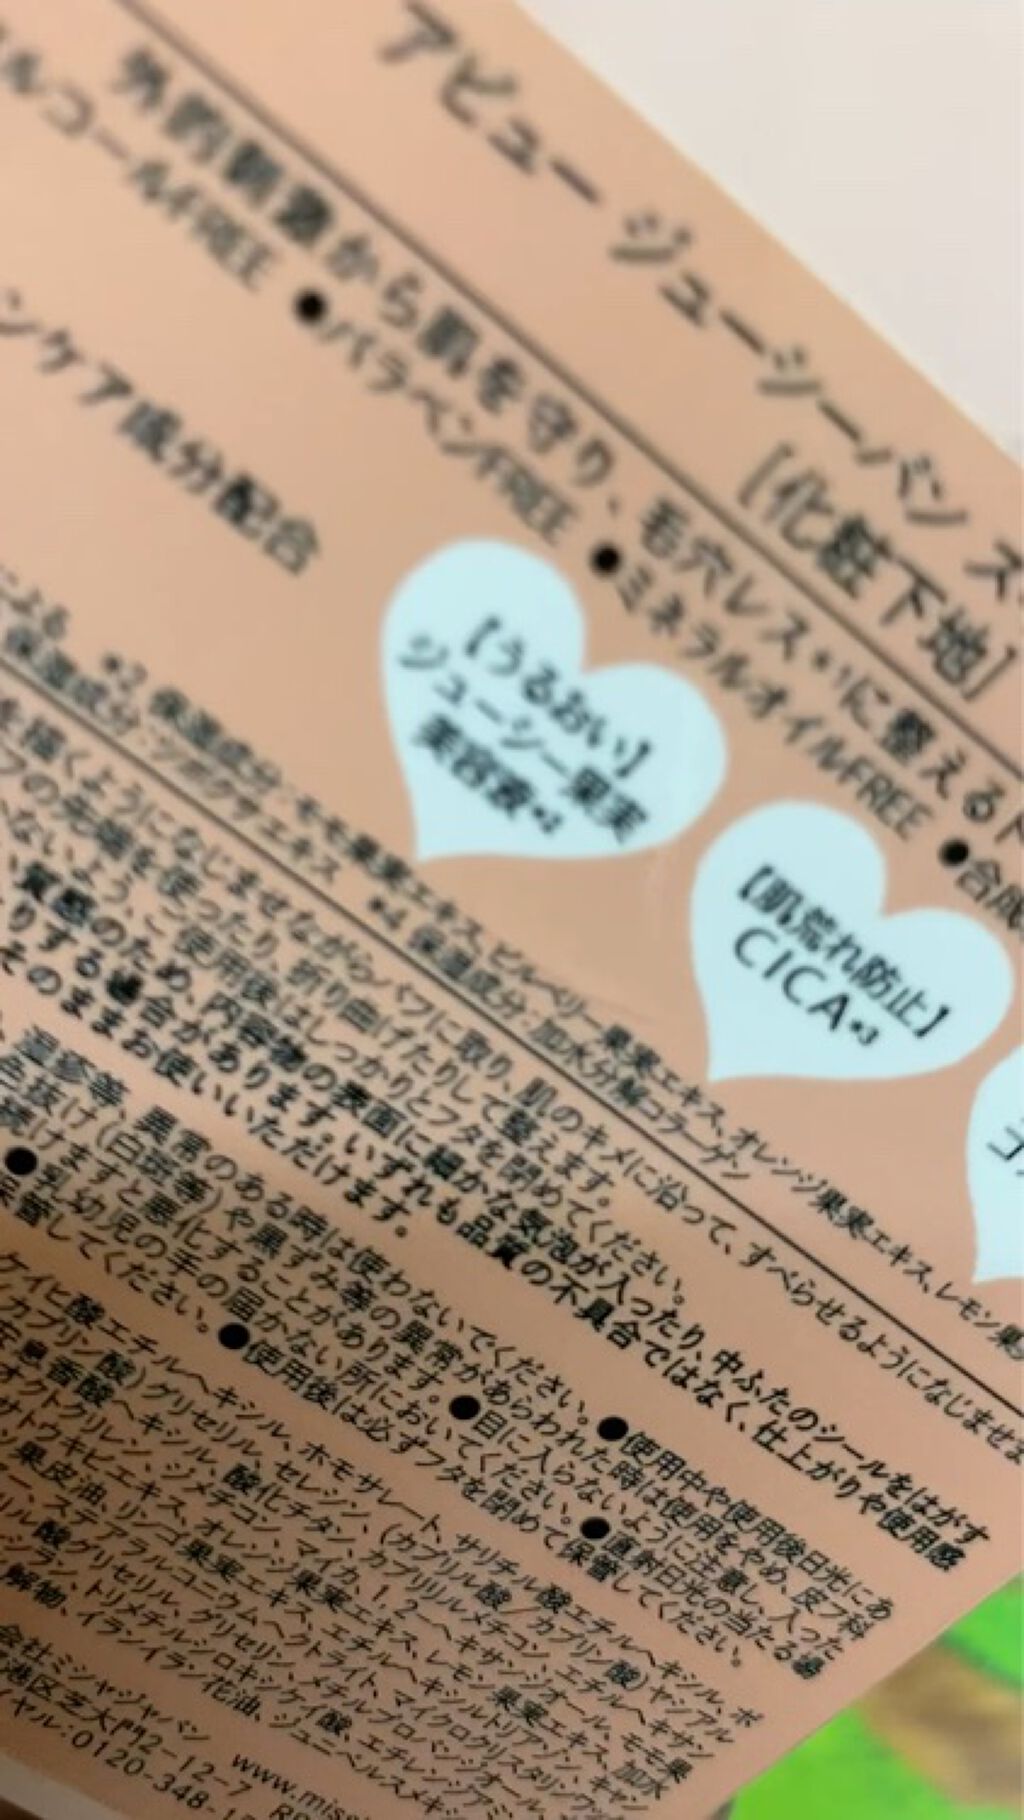 アピュー ジューシーパン ス
[化粧下地]
外的刺激から肌を守り、毛穴レス*1に整える
ルコールFREE ●パラベンFREE ●ミネラルオイルFREE ●合成
ンケア成分配合
【うるおい】
ジューシー果実
美容液*2
【肌荒れ防止】
CICA*3
による *2 保湿成分:モモ果実エキス、ビルベリー果実エキス、オレンジ果実エキス、レモン果
保湿成分:ツボクサエキス *4 保湿成分:加水分解コラーゲン
を描くようになじませながらパフに取り、肌のキメに沿って、すべらせるようになじませま
フの先端を使ったり、折り曲げたりして整えます。
かないよう、ご使用後はしっかりとフタを閉めてください。
質感のため、内容物の表面に細かな気泡が入ったり、中ふたのシールをはがす
りする場合があります。いずれも品質の不具合ではなく、仕上がりや使用感
そのままお使いいただけます。
湿疹等、異常のある時は使わないでください。●使用中や使用後日光にあ
色抜け(白斑等)や黒ずみ等の異常があらわれた時は使用をやめ、皮フ科
続けますと悪化することがあります。●目に入らないように注意し、入った
●乳幼児の手の届かない所においてください。●直射日光の当たる場
保管してください。●使用後は必ずフタを閉めて保管してください。
ケイヒ酸エチルヘキシル、ホモサレート、サリチル酸エチルヘキシル、ポ
カプリン酸)グリセリル、セレシン、(カプリル酸/カプリン酸)ヤシアル
安息香酸ヘキシル、酸化チタン、カプリリルメチコン、エチルヘキサン
オクトクリレン、ジメチコン、マイカ、1,2-ヘキサンジオール、モモ果
サトウキビエキス、オレンジ果実エキス、レモン果実エキス、加水
会社ミシャジャパン www.miss
港区芝大門2-12-7
ヤル:0120-348-1